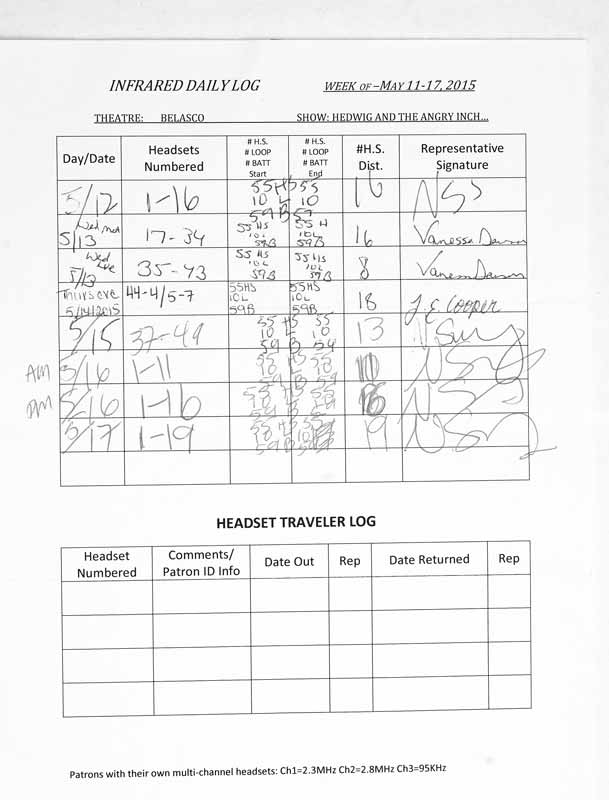 INFRARED DAILY LOG WEEK OF –MAY 11-17, 2015
THEATRE: BELASCO SHOW: HEDWIG AND THE ANGRY INCH…
Day/Date Headsets Numbered # H.S. # LOOP # BATT Start # H.S. # LOOP # BATT End #H.S. Dist. Representative Signature
5/12 1-16 55 HS 55 16
10 L 10
59 B 59
Wed mat 5/13 17-34 55 HS 10L 59B 55 H 10L 59B 16 Vanessa
Wed eve 5/13 35-43 55 HS 10L 59B 55 HS 10L 59B 8 Vanessa
Thurs eve 5/14/2015 44-4/5-7 55HS 10L 59B 55HS 10L 59B 18 J.E. Cooper
5/15 37-49 55 HS 55 13
10 L 10
59 B 59
AM 5/16 1-11 10
PM 5/16 1-16 16
5/17 1-19 19
HEADSET TRAVELER LOG
Headset Numbered Comments/ Patron ID Info Date Out Rep Date Returned Rep
Patrons with their own multi-channel headsets: Ch1=2.3MHz Ch2=2.8MHz Ch3=95KHz